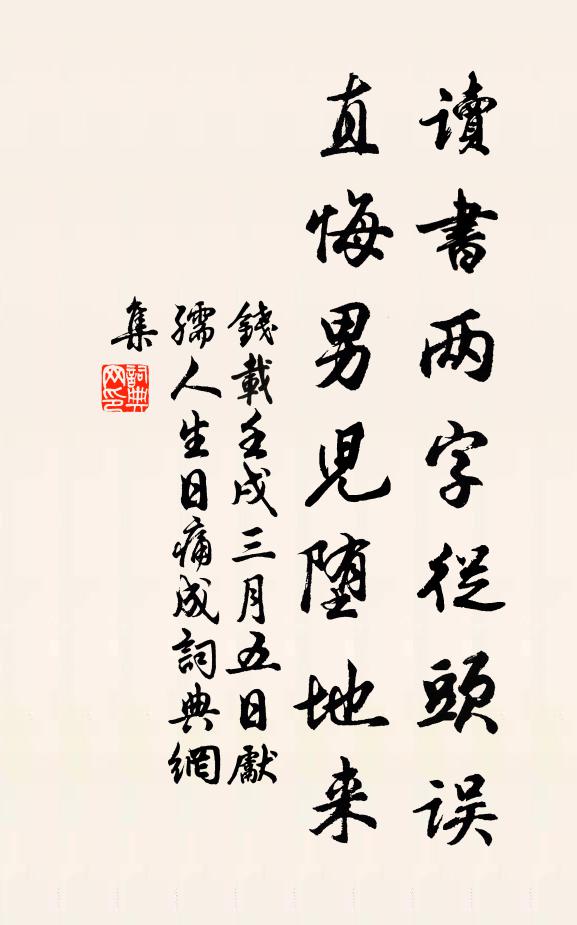 讀書两字從頭误
直悔男児堕地来
錢載壬戌三月五日獻
孺人生日痛成詞典網
集
詞典网印